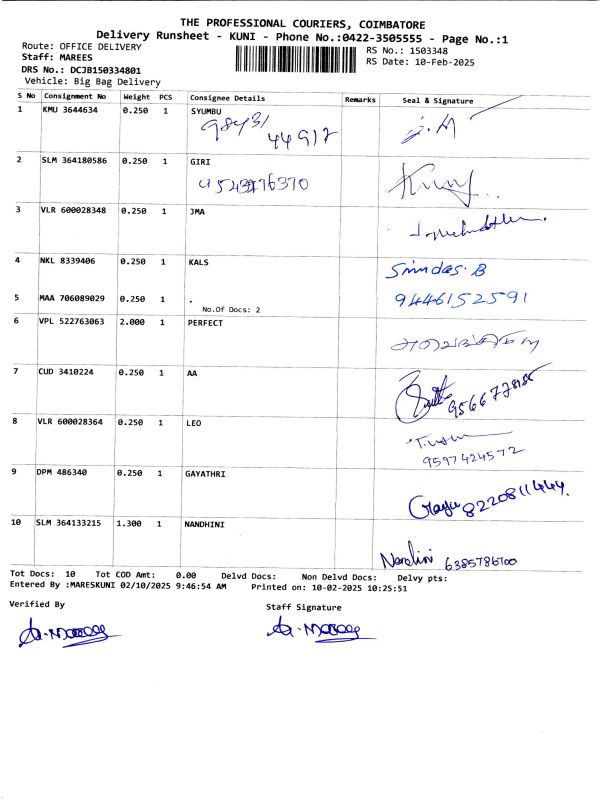 THE PROFESSIONAL COURIERS, COIMBATORE
Delivery Runsheet - KUNI - Phone No.:0422-3505555 - Page No.:1
Route: OFFICE DELIVERY
RS No.: 1503348
Staff: MAREES
RS Date: 10-Feb-2025
DRS No.: DCJB150334801
Vehicle: Big Bag Delivery
S No Consignment No Weight PCS Consignee Details Remarks Seal & Signature
1 KMU 3644634 0.250 1 SYUMBU
44917
2 SLM 364180586 0.250 1 GIRI
3 VLR 600028348 0.250 1 JMA
4 NKL 8339406 0.250 1 KALS
5 MAA 706089029 0.250 1 . 9446152591
No.Of Docs: 2
6 VPL 522763063 2.000 1 PERFECT
7 CUD 3410224 0.250 1 AA
8 VLR 600028364 0.250 1 LEO
9597424572
9 DPM 486340 0.250 1 GAYATHRI
8220811444.
10 SLM 364133215 1.300 1 NANDHINI
Nandini 6385786700
Tot Docs: 10 Tot COD Amt: 0.00 Delvd Docs: Non Delvd Docs: Delvy pts:
Entered By :MARESKUNI 02/10/2025 9:46:54 AM Printed on: 10-02-2025 10:25:51
Verified By Staff Signature